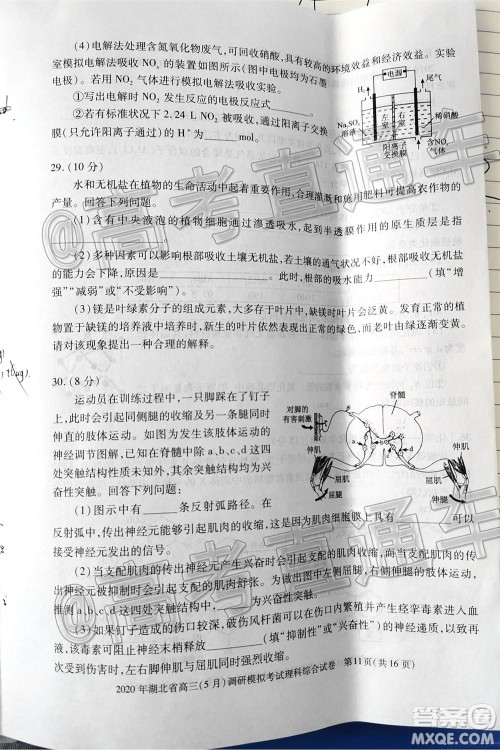 (4)电解法处理含氮氧化物废气,可回收硝酸,具有较高的环境效益和经济效益。实验
室模拟电解法吸收NOx的装置如图所示(图中电极均为石墨
电极)。若用NO₂气体进行模拟电解法吸收实验。
①写出电解时NO₂发生反应的电极反应式
②若有标准状况下2.24 L NO₂被吸收,通过阳离子交换
膜(只允许阳离子通过)的H⁺为 mol。
电源
H₂
尾气
Na₂SO₄
溶液
左室
右室
稀硝酸
阳离子
交换膜
含NOx
气体
29.(10分)
水和无机盐在植物的生命活动中起着重要作用,合理灌溉和施用肥料可提高农作物的
产量。回答下列问题。
(1)含有中央液泡的植物细胞通过渗透吸水,起到半透膜作用的原生质层是指
。
(2)多种因素可以影响根部吸收土壤无机盐,若土壤的通气状况不好,根部吸收无机盐
的能力会下降,原因是 。此时,根的吸水能力 (填“增
强”“减弱”或“不受影响”)。
(3)镁是叶绿素分子的组成元素,大多存在于叶片中,缺镁时叶片会泛黄。发育正常的植
物置于缺镁的培养液中培养时,新生叶片表现出正常的绿色,而老叶由绿逐渐变黄。
请对该现象提出一种合理的解释。
30.(8分)
运动员在训练过程中,一只脚踩在了钉子
上会引起同侧腿的收缩反射以及对侧腿同时
伸直的肢体运动。如图为发生该肢体运动的
神经调节图解。已知在脊髓中除a、b、c、d这四
处突触结构性质未知外,其余突触结构均为兴
奋性突触。回答下列问题:
脊髓
对脚的
有害刺激
伸肌
屈肌
屈腿
屈肌
伸肌
伸腿
(1)图示中有 条反射弧路径。在
反射弧中,传出神经元能够引起肌肉的收缩,这是因为肌肉细胞膜上具有 可以
接受神经元发出的信号。
(2)当支配肌肉的传出神经元产生兴奋时会引起支配的肌肉收缩,而当传出神经元受
到抑制时会引起支配的肌肉舒张。根据图示中左侧屈腿、右侧伸腿的肢体运动,
推测a、b、c、d这四处突触结构中属于兴奋性突触的是 。
(3)如果钉子造成的伤口较深,破伤风杆菌可能会在伤口内繁殖并产生痉挛毒素,该毒
素会阻止神经末梢释放甘氨酸(填“抑制性”或“兴奋性”)的神经递质,运动员多
次发生左脚伸肌与屈肌同时强烈收缩。
2020年湖北省高三(5月)调研模拟考试理科综合试卷 第11页(共16页)
高考直通车
高考直通车
答案圈
MXQE.COM